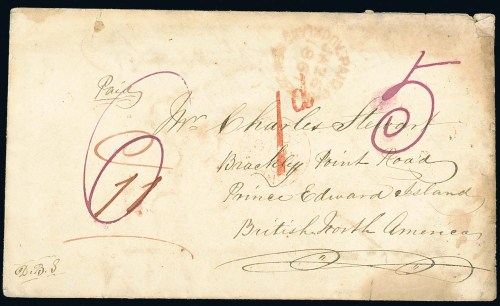 Paid
5
1d
11
Mr Charles Stewart
Brackly Point Road
Prince Edward Island
British North America